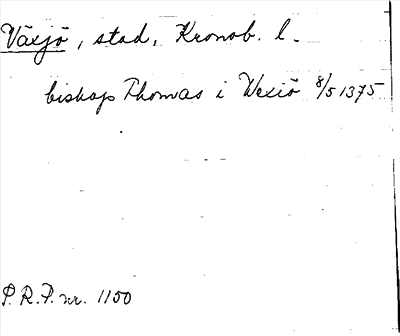 Växjö, stad, Kronob. l.
biskop Thomas i Wexiö 8/5 1375
P.R.P. nr. 1150